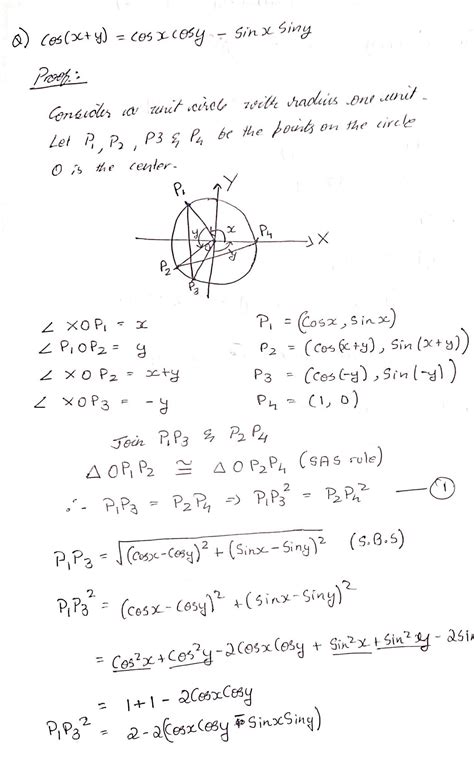 Q) cos(x+y) = cosx cosy - sinx siny
Proof:
Consider a unit circle with radius one unit.
Let P₁, P₂, P3 & P₄ be the points on the circle
O is the center.
P₁ Y
y x P₄ X
O y
P₂
P₃
∠ XOP₁ = x P₁ = (Cosx, sinx)
∠ P₁OP₂ = y P₂ = (cos(x+y), Sin(x+y))
∠ XOP₂ = x+y P₃ = (cos(-y), Sin(-y))
∠ XOP₃ = -y P₄ = (1, 0)
Join P₁P₃ & P₂P₄
△ OP₁P₂ ≅ △ OP₂P₄ (SAS rule)
∴ P₁P₃ = P₂P₄ ⇒ P₁P₃² = P₂P₄² — ①
P₁P₃ = √(cosx-cosy)² + (sinx-siny)² (S.B.S)
P₁P₃² = (cosx-cosy)² + (sinx-siny)²
= cos²x + cos²y - 2cosxcosy + sin²x + sin²y - 2sin
= 1+1 - 2cosxcosy
P₁P₃² = 2-2(cosxcosy sinxsiny)